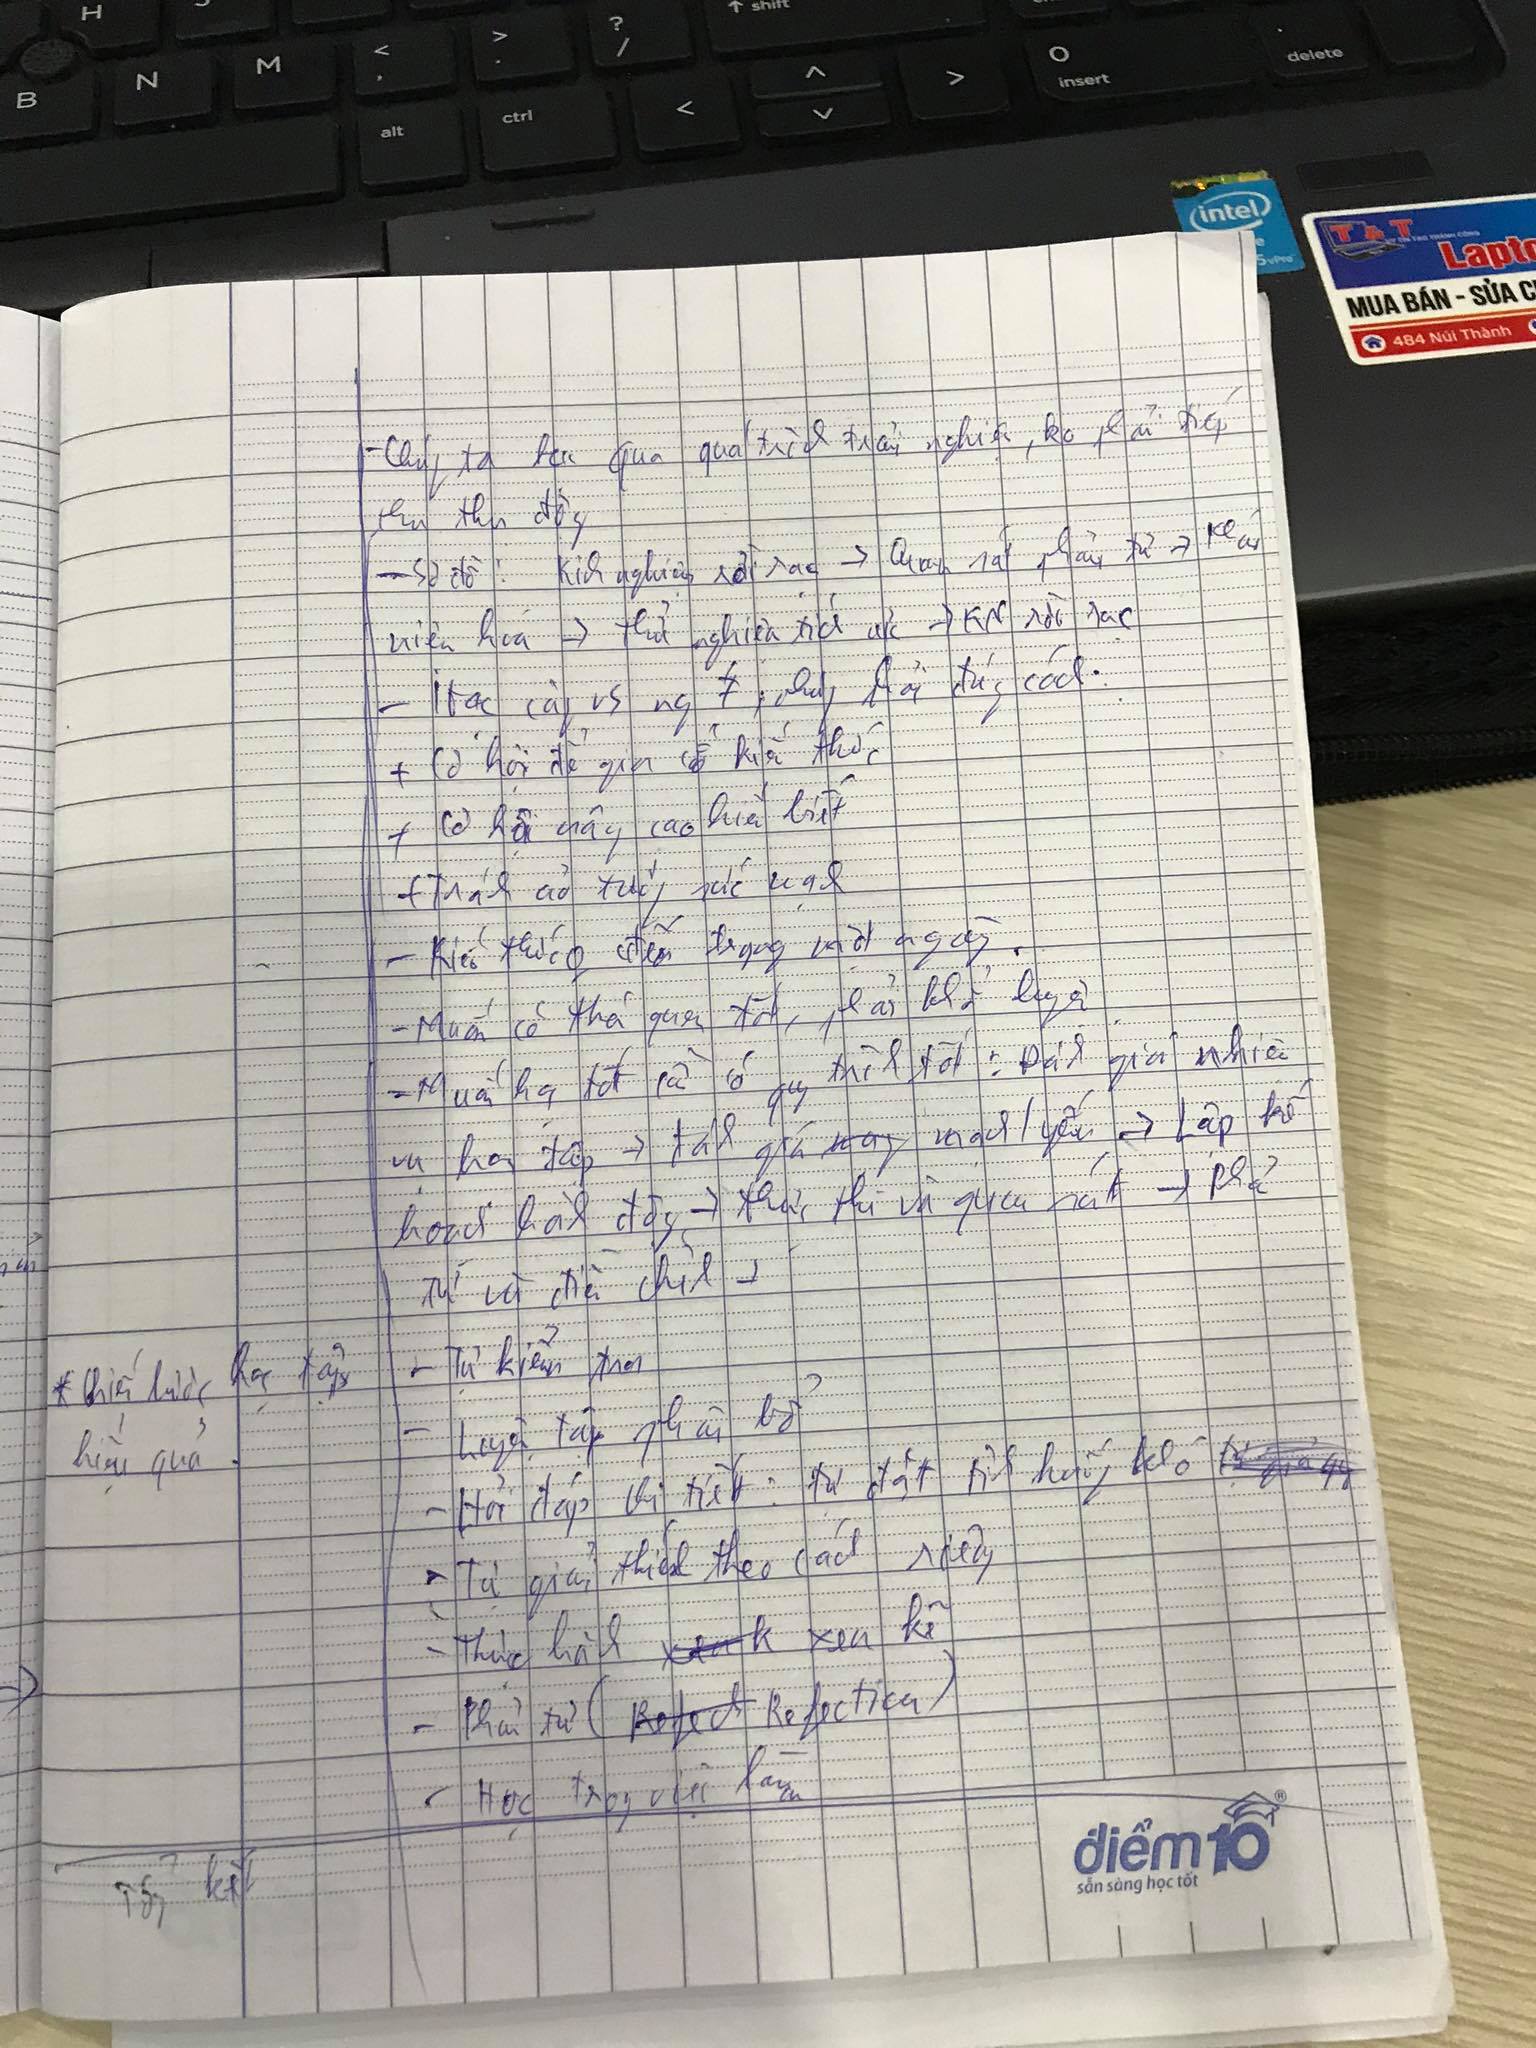 H
B
N
M
<
,
>
.
?
/
shift
alt
ctrl
<
>
O
insert
.
delete
intel
5 vPro
T&T
Lapto
MUA BÁN - SỬA CH
484 Núi Thành
- Chúng ta học qua quá trình trải nghiệm, ko phải tiếp
thu thụ động
- Sơ đồ: Kinh nghiệm rời rạc → Quan sát phản tư → Khái
niệm hoá → thử nghiệm tích cực → KN rời rạc
- Học cùng vs ng ≠, nhưng phải đúng cách.
+ Cơ hội để gia cố kiến thức
+ Cơ hội nâng cao hiểu biết
+ Tránh ảo tưởng sức mạnh
- Kiến thức đến trong một người.
- Muốn có thói quen tốt, phải khổ luyện
- Muốn học tốt cần có quy trình tốt: Đánh giá nhiệm
vụ học tập → đánh giá mạnh/yếu → Lập kế
hoạch hành động → thực thi và quan sát → Phản
tư và điều chỉnh →
* Chiến lược học tập
hiệu quả.
- Tự kiểm tra
- Luyện tập phân bổ
- Hỏi đáp chi tiết: tự đặt tình huống khó
- Tự giải thích theo cách riêng
- Thực hành xen kẽ
- Phản tư (Refect Refection)
- Học trong việc làm
Tổng kết
điểm10®
sẵn sàng học tốt